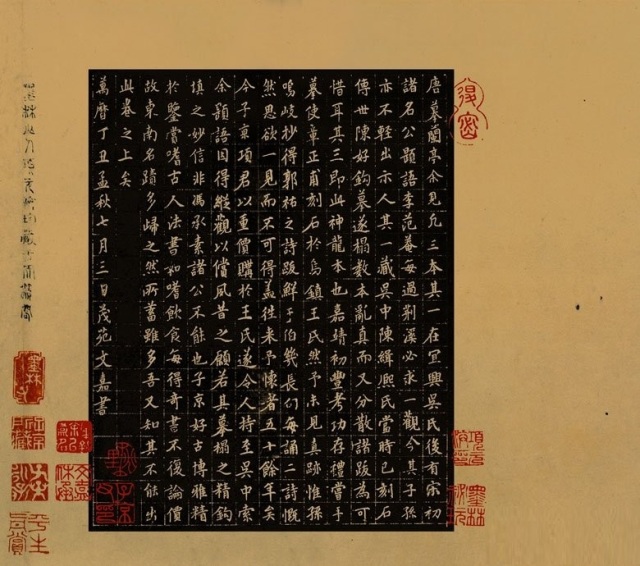 唐摹蘭亭余見凡三本其一在宜興吳氏後有宋初
諸名公題語李范菴每過荆溪必求一觀今其子孫
亦不輕出示人其一藏吳中陳緝熙氏當時已刻石
傳世陳好鉤摹遂搨數本亂真而又分散諸跋為可
惜耳其三即此神龍本也嘉靖初豐考功存禮嘗手
摹使章正甫刻石於烏鎮王氏然予未見真跡惟孫
鳴岐抄得郭祐之詩跋鮮于伯幾長句每誦二詩慨
然思欲一見而不可得蓋往來予懷者五十餘年矣
今子京項君以重價購於王氏遂令人持至吳中索
余題語因得縱觀以償夙昔之願若其摹搨之精鉤
填之妙信非馮承素諸公不能也子京好古博雅精
於鑒賞嗜古人法書如嗜飲食每得奇書不復論價
故東南名蹟多歸之然所蓄雖多吾又知其不能出
此卷之上矣
萬曆丁丑孟秋七月三日茂苑文嘉書
墨林
子京
平生真賞